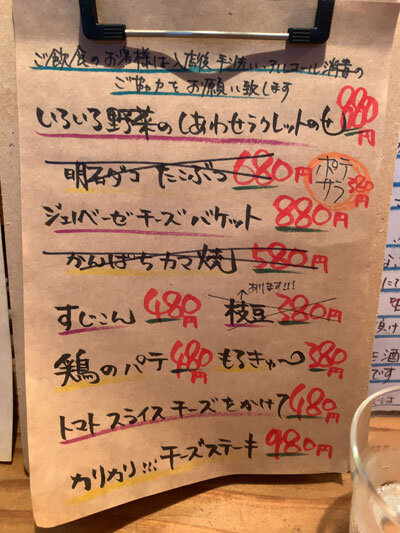 ご飲食のお客様は入店後手洗い・アルコール消毒の
ご協力をお願い致します
いろいろ野菜のしあわせラクレットのせ 880円
明石ダコ たこぶつ 680円
ポテサラ 380円
ジェノベーゼチーズバケット 880円
かんぱちカマ焼し 580円
あります!!!
すじこん 480円
枝豆 380円
鶏のパテ 480円
もろきゅ〜 380円
トマトスライスチーズをかけて 480円
カリカリ!!!チーズステーキ 980円